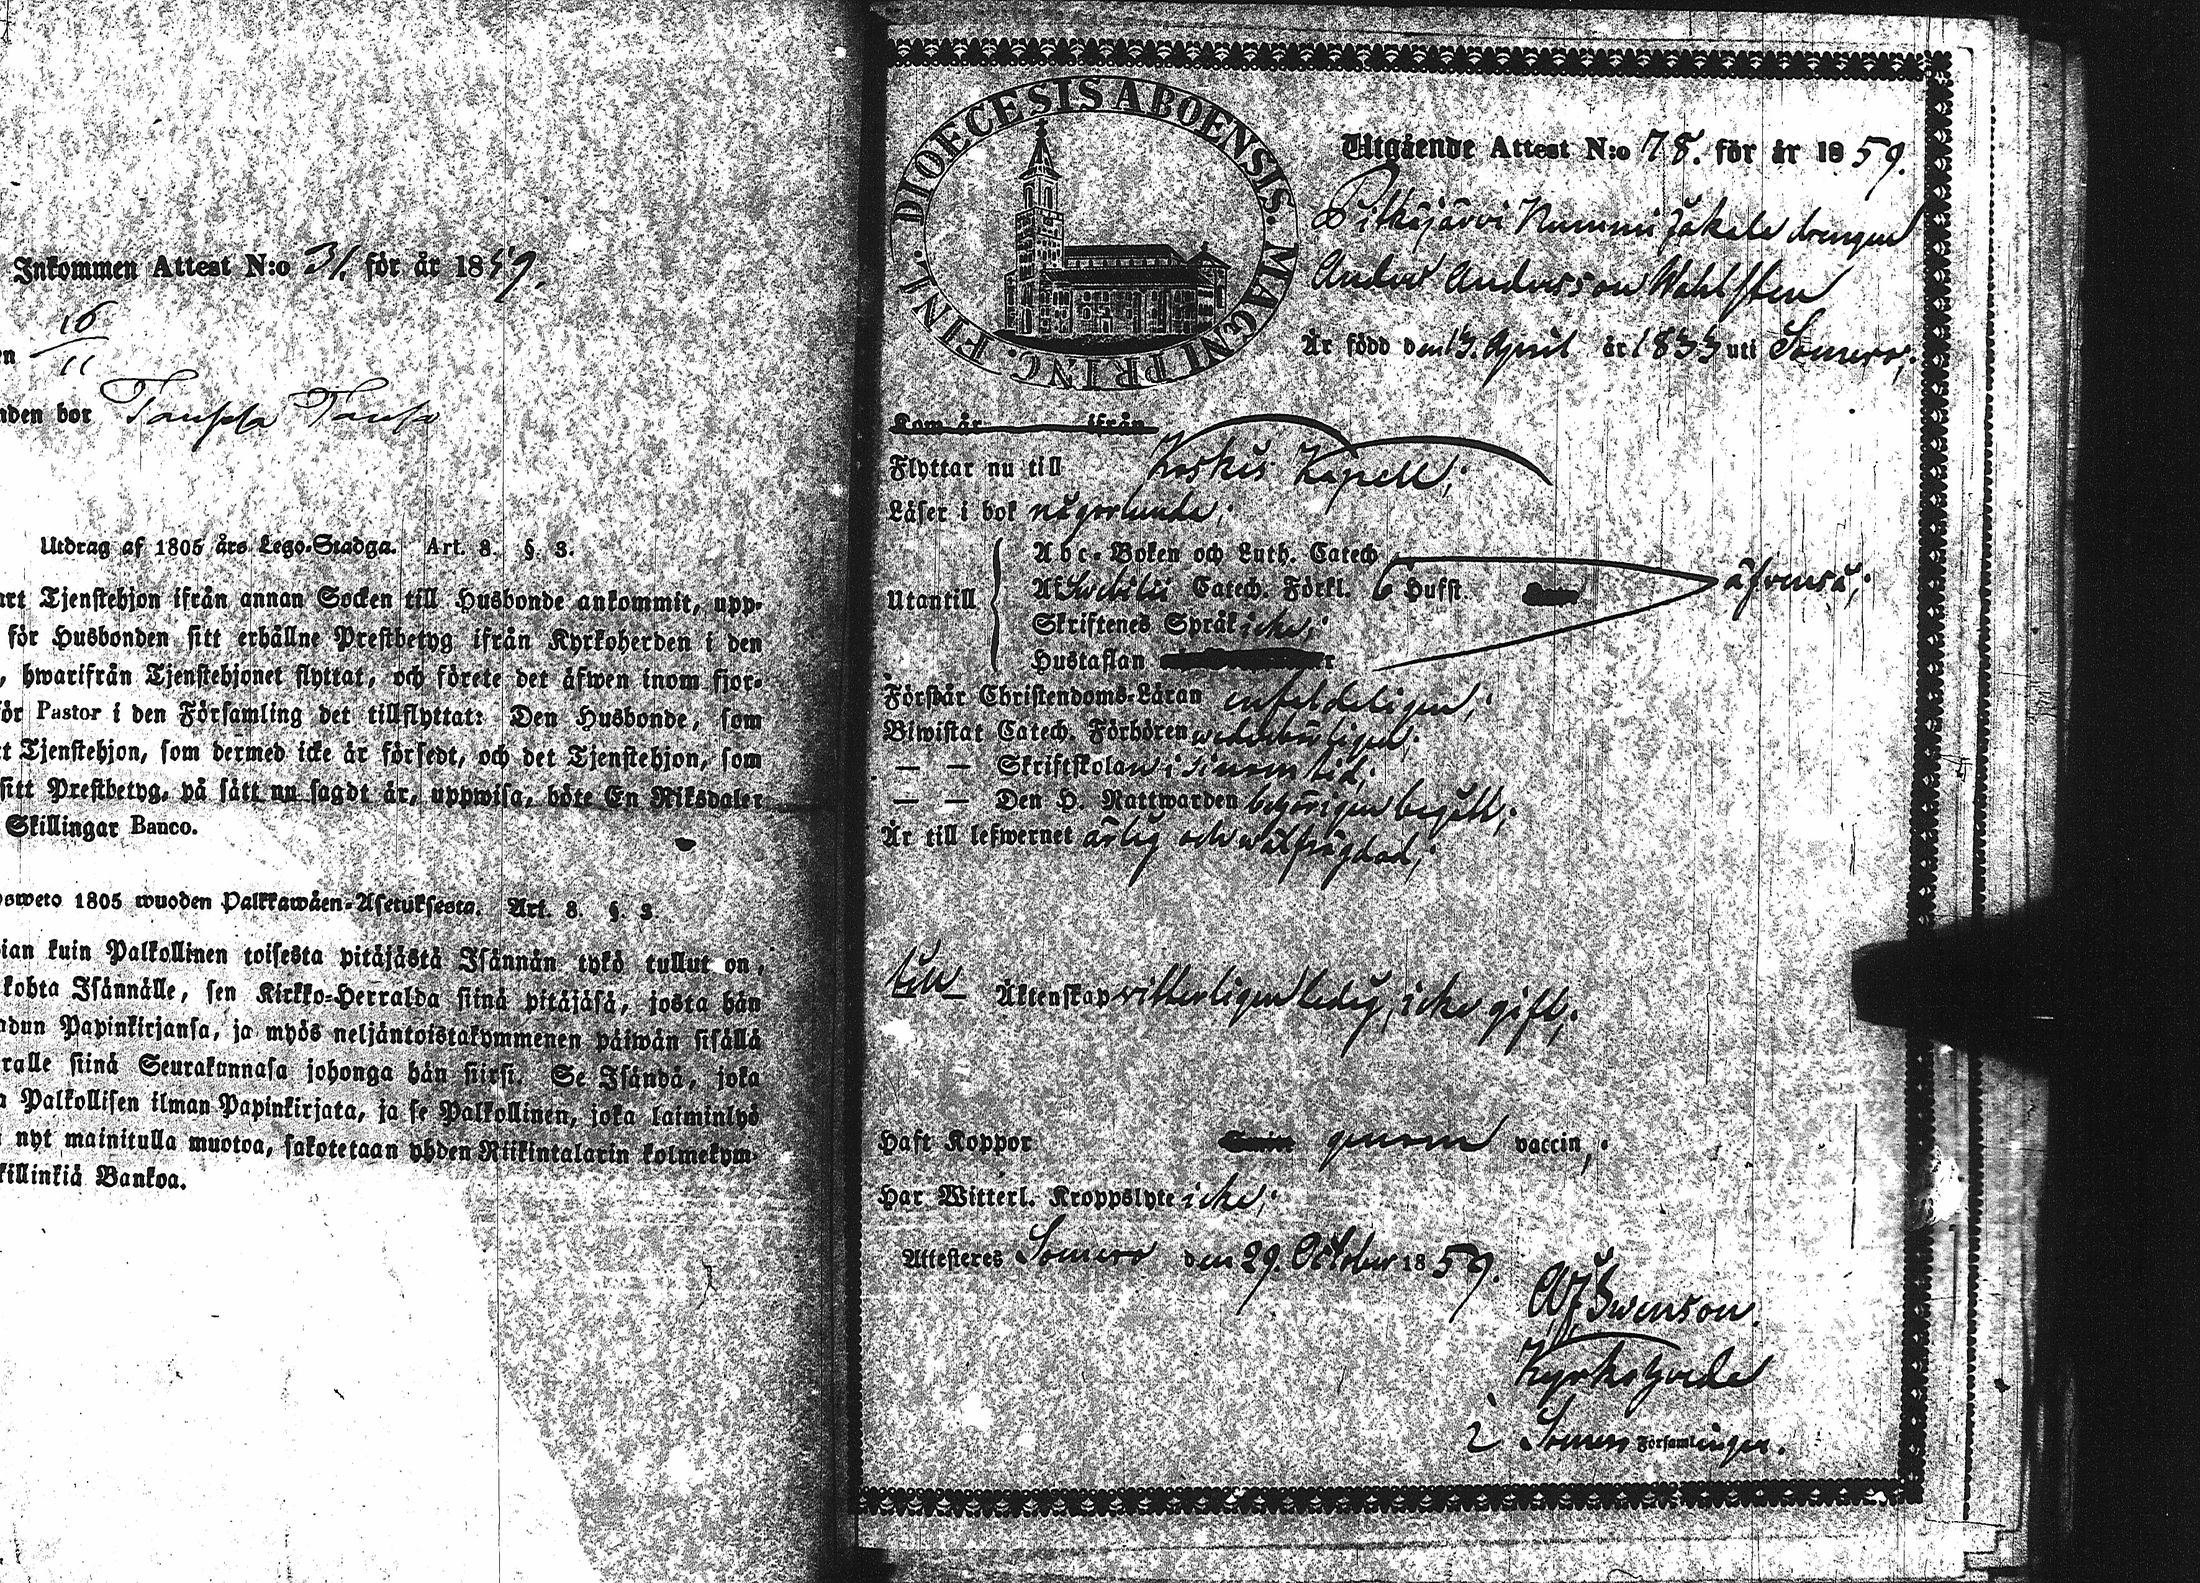 Inkommen Attest N:o 31. för år 1859.
en 16/11
nden bor
Utdrag af 1805 års Lego-Stadga. Art. 8. §. 3.
art Tjenstehjon ifrån annan Socken till Husbonde ankommit, upp-
för Husbonden sitt erhållne Prestbetyg ifrån Kyrkoherden i den
, hwarifrån Tjenstehjonet flyttat, och förete det äfwen inom fjor-
för Pastor i den Församling det tillflyttat: Den Husbonde, som
t Tjenstehjon, som dermed icke är försedt, och det Tjenstehjon, som
sitt Prestbetyg, på sätt nu sagdt är, uppwisa, böte En Riksdaler
Skillingar Banco.
osweto 1805 wuoden Palkkawäen-Asetuksesta. Art. 8. §. 3.
pian kuin Palkollinen toisesta pitäjästä Isännän tykö tullut on,
kohta Isännälle, sen Kirkko-Herralda siinä pitäjäsä, josta hän
adun Papinkirjansa, ja myös neljäntoistakymmenen päiwän sisällä
ralle siinä Seurakunnasa johonga hän siirsi. Se Isändä, joka
n Palkollisen ilman Papinkirjata, ja se Palkollinen, joka laiminlyö
nyt mainitulla muotoa, sakotetaan yhden Riikintalarin kolmekym-
killinkiä Bankoa.
DIOECESIS ABOENSIS. MAGNI PRINC. FINL.
Utgående Attest N:o 78. för år 1859.
Pitkäjärvi Nummi Jakala drengen
Anders Andersson Wahlsten
Är född den 13. April år 1833 uti Somero;
Kom år ifrån
Flyttar nu till Koskis Kapell;
Läser i bok någorlunda;
Utantill
Abc-Boken och Luth. Catech
Af Svebilii Catech. Förkl. 6 Hufst. äfvenså;
Skriftenes Språk icke;
Hustaflan
Förstår Christendoms-Läran enfaldeligen;
Biwistat Catech. Förhören wederbörligen;
— — Skriftskolan i sinom tid;
— — Den H. Nattwarden behörigen begått;
Är till lefwernet ärlig och wälfrägdad;
till Äktenskap vitterligen ledig, icke gift;
Haft Koppor genom vaccin;
Har Witterl. Kroppslyte icke;
Attesteres Somero den 29. October 1859.
Swenson.
Kyrkoherde
i Somero Församlingen.